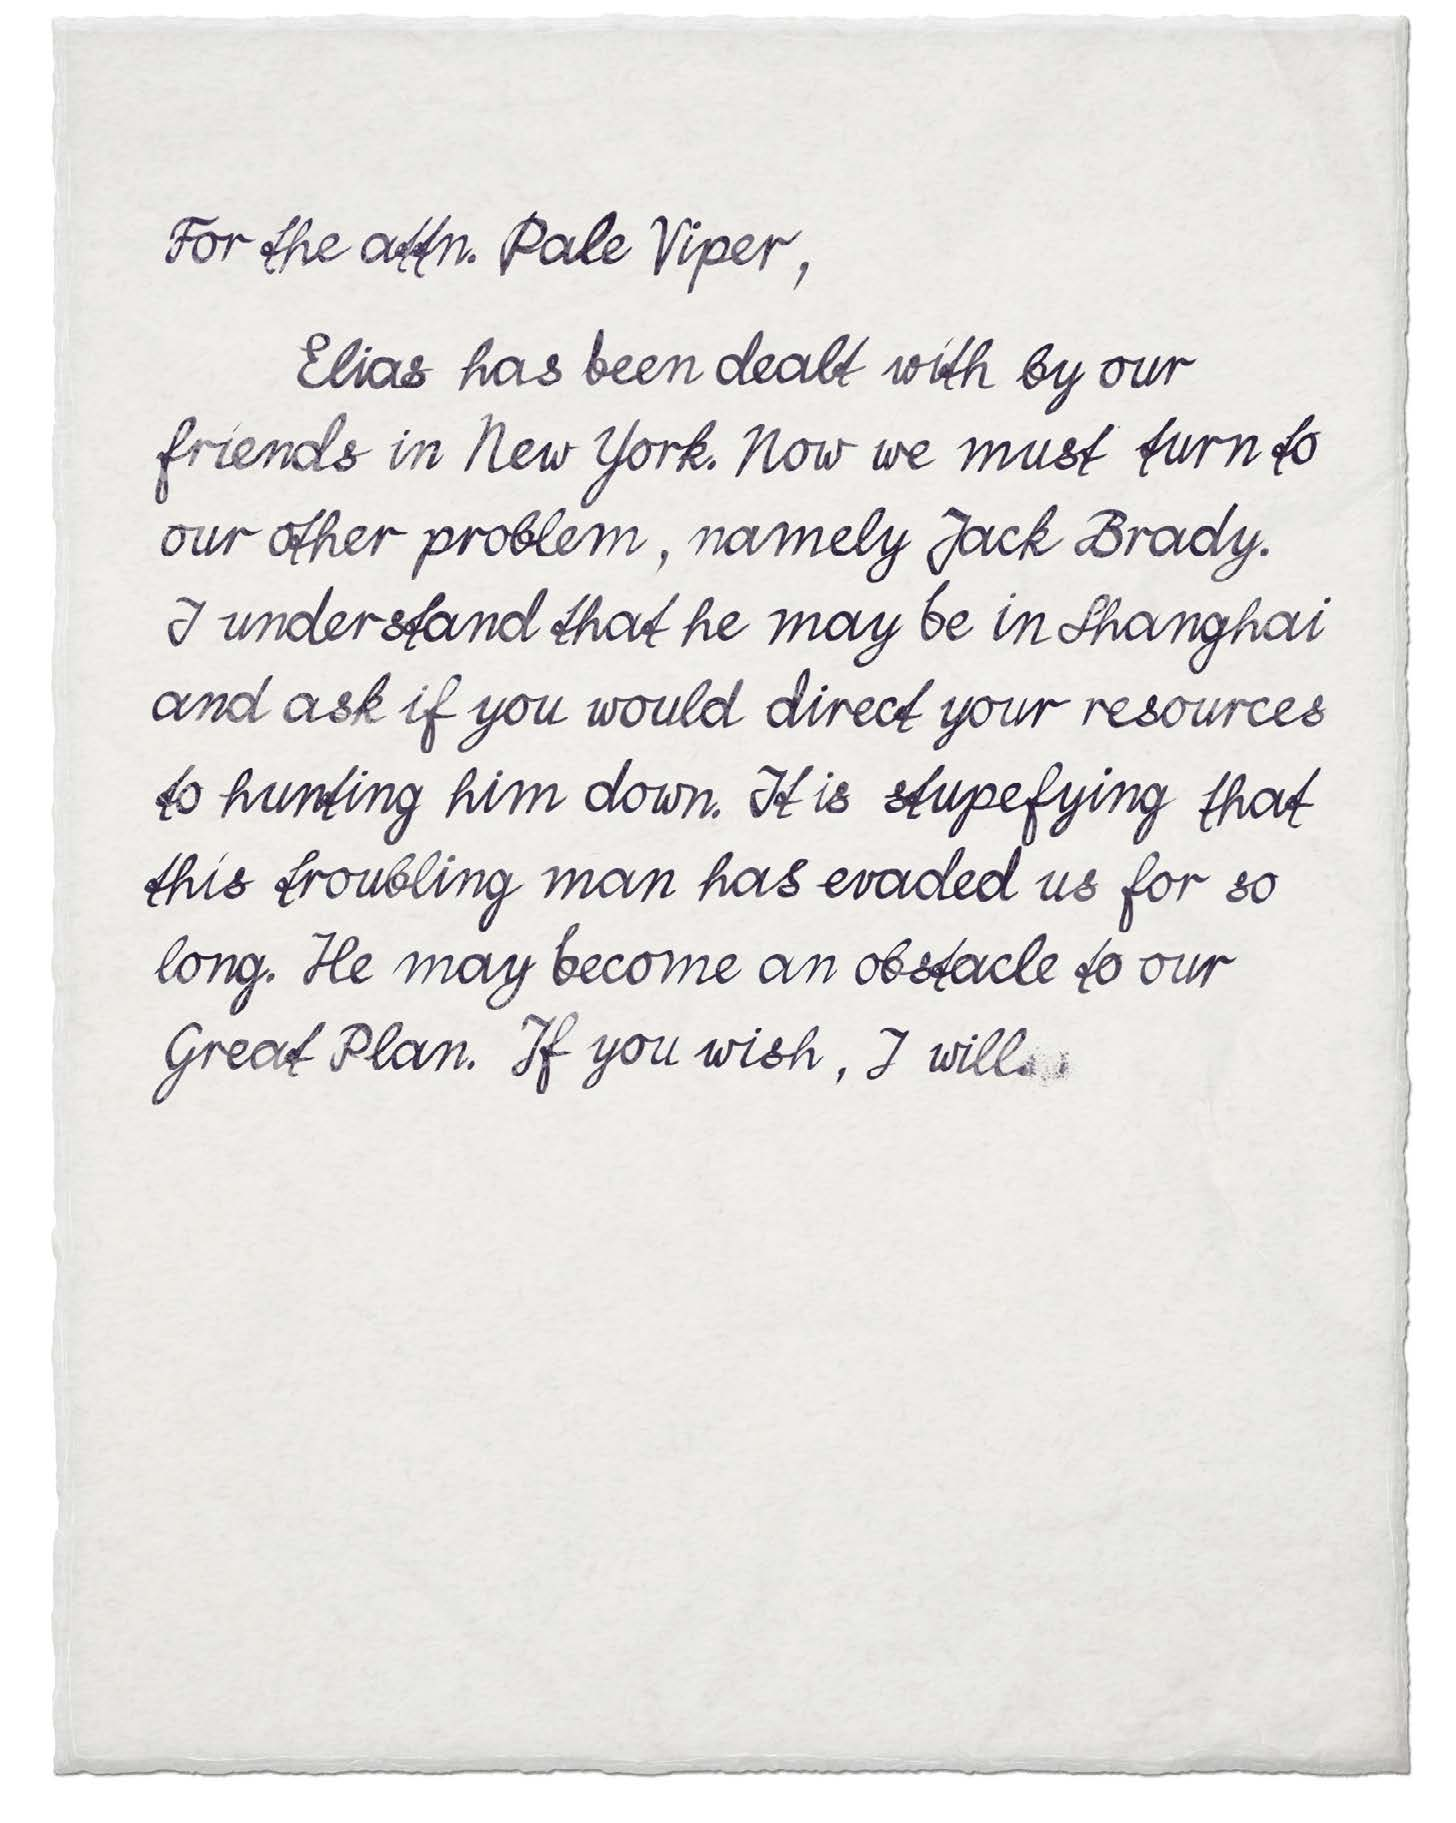 For the attn. Pale Viper,
Elias has been dealt with by our
friends in New York. Now we must turn to
our other problem, namely Jack Brady.
I understand that he may be in Shanghai
and ask if you would direct your resources
to hunting him down. It is stupefying that
this troubling man has evaded us for so
long. He may become an obstacle to our
Great Plan. If you wish, I will...